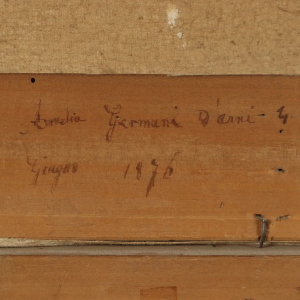 Amelia Germani D'anni 4
Giugno 1876